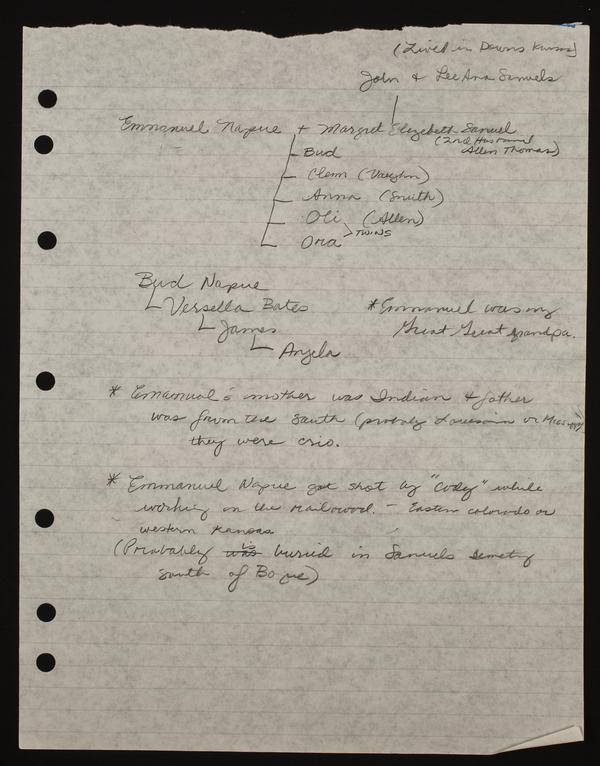 (Lived in Downs Kansas)
John & LeeAna Samuels
Emmanuel Napue + Margret Elizabeth Samuel
(2nd Husband
Allen Thomas)
Bud
Clem (Vaughn)
Anna (Smith)
Oli (Allen)
> TWINS
Ora
Bud Napue
Versella Bates
James
Angela
* Emmanuel was my
Great Great grandpa.
* Emmanual's mother was Indian & father
was from the South (probaly Louesian or
they were crio.
* Emmanuel Napue got shot by "Cody" while
working on the railroad. - Eastern colorado or
western Kansas
(Probably was is buried in Samuels Semetry
South of Bogue)